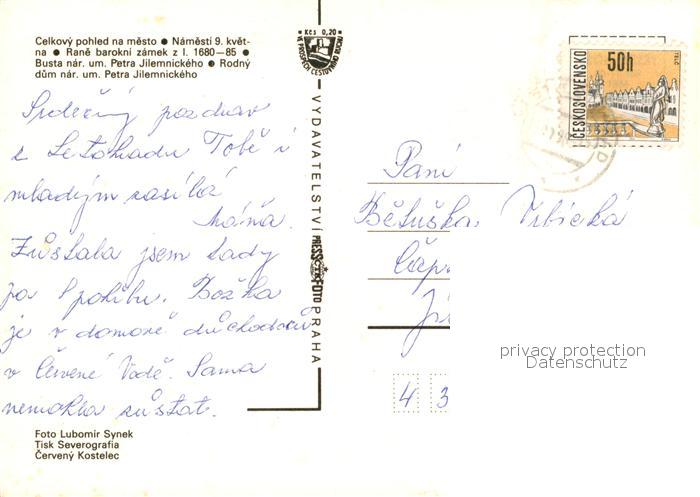 Celkový pohled na město ● Náměstí 9. květ-
na ● Raně barokní zámek z l. 1680—85 ●
Busta nár. um. Petra Jilemnického ● Rodný
dům nár. um. Petra Jilemnického
Srdečný pozdrav
z Letohradu Tobě i
mladým zasílá
Máňa.
Zůstala jsem tady
po pohřbu. Božka
je v domově důchodců
v Červené Vodě. Sama
nemohla zůstat.
Foto Lubomír Synek
Tisk Severografia
Červený Kostelec
Kčs 0,20
VE PROSPĚCH CESTOVNÍHO RUCHU
VYDAVATELSTVÍ PRESSFOTO PRAHA
ČTK
ČESKOSLOVENSKO
50h
TELČ
Paní
Bětuška Vrbická
Čáp
Ji
4 3
privacy protection
Datenschutz